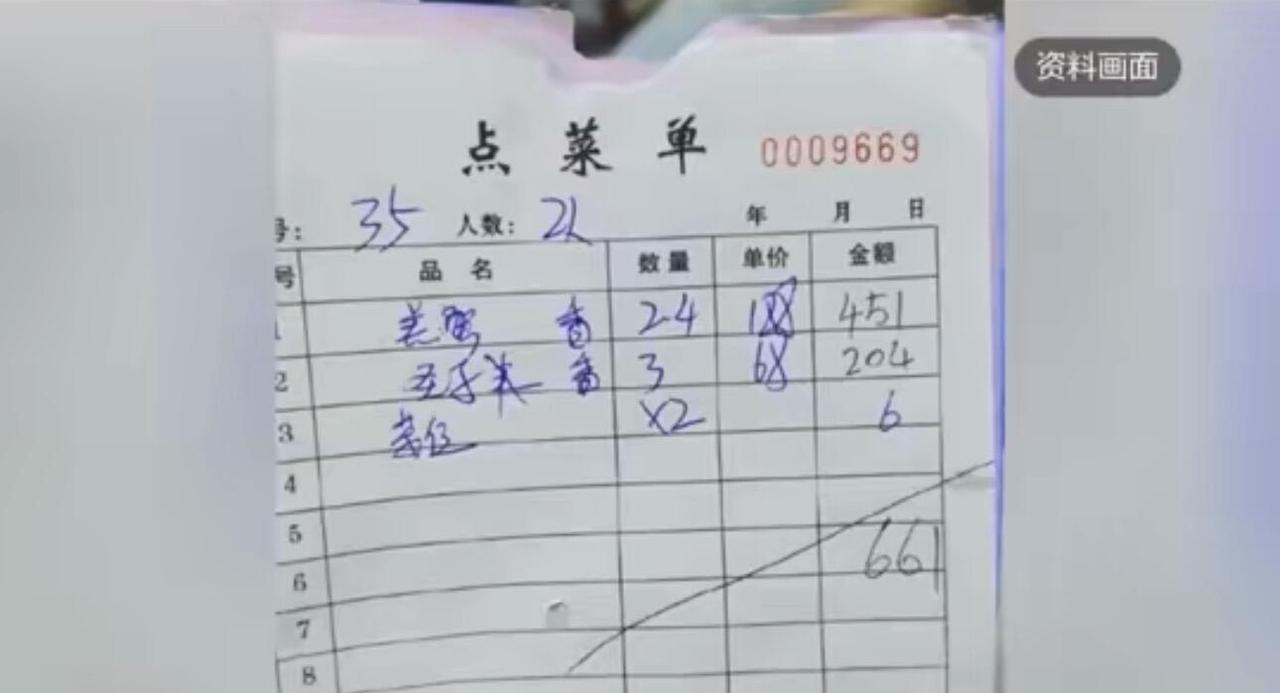 资料画面
点菜单 0009669
号: 35 人数: 21 年 月 日
号 品名 数量 单价 金额
1 2.4 188 451
2 3 68 204
3 x2 6
4
5
6 661
7
8